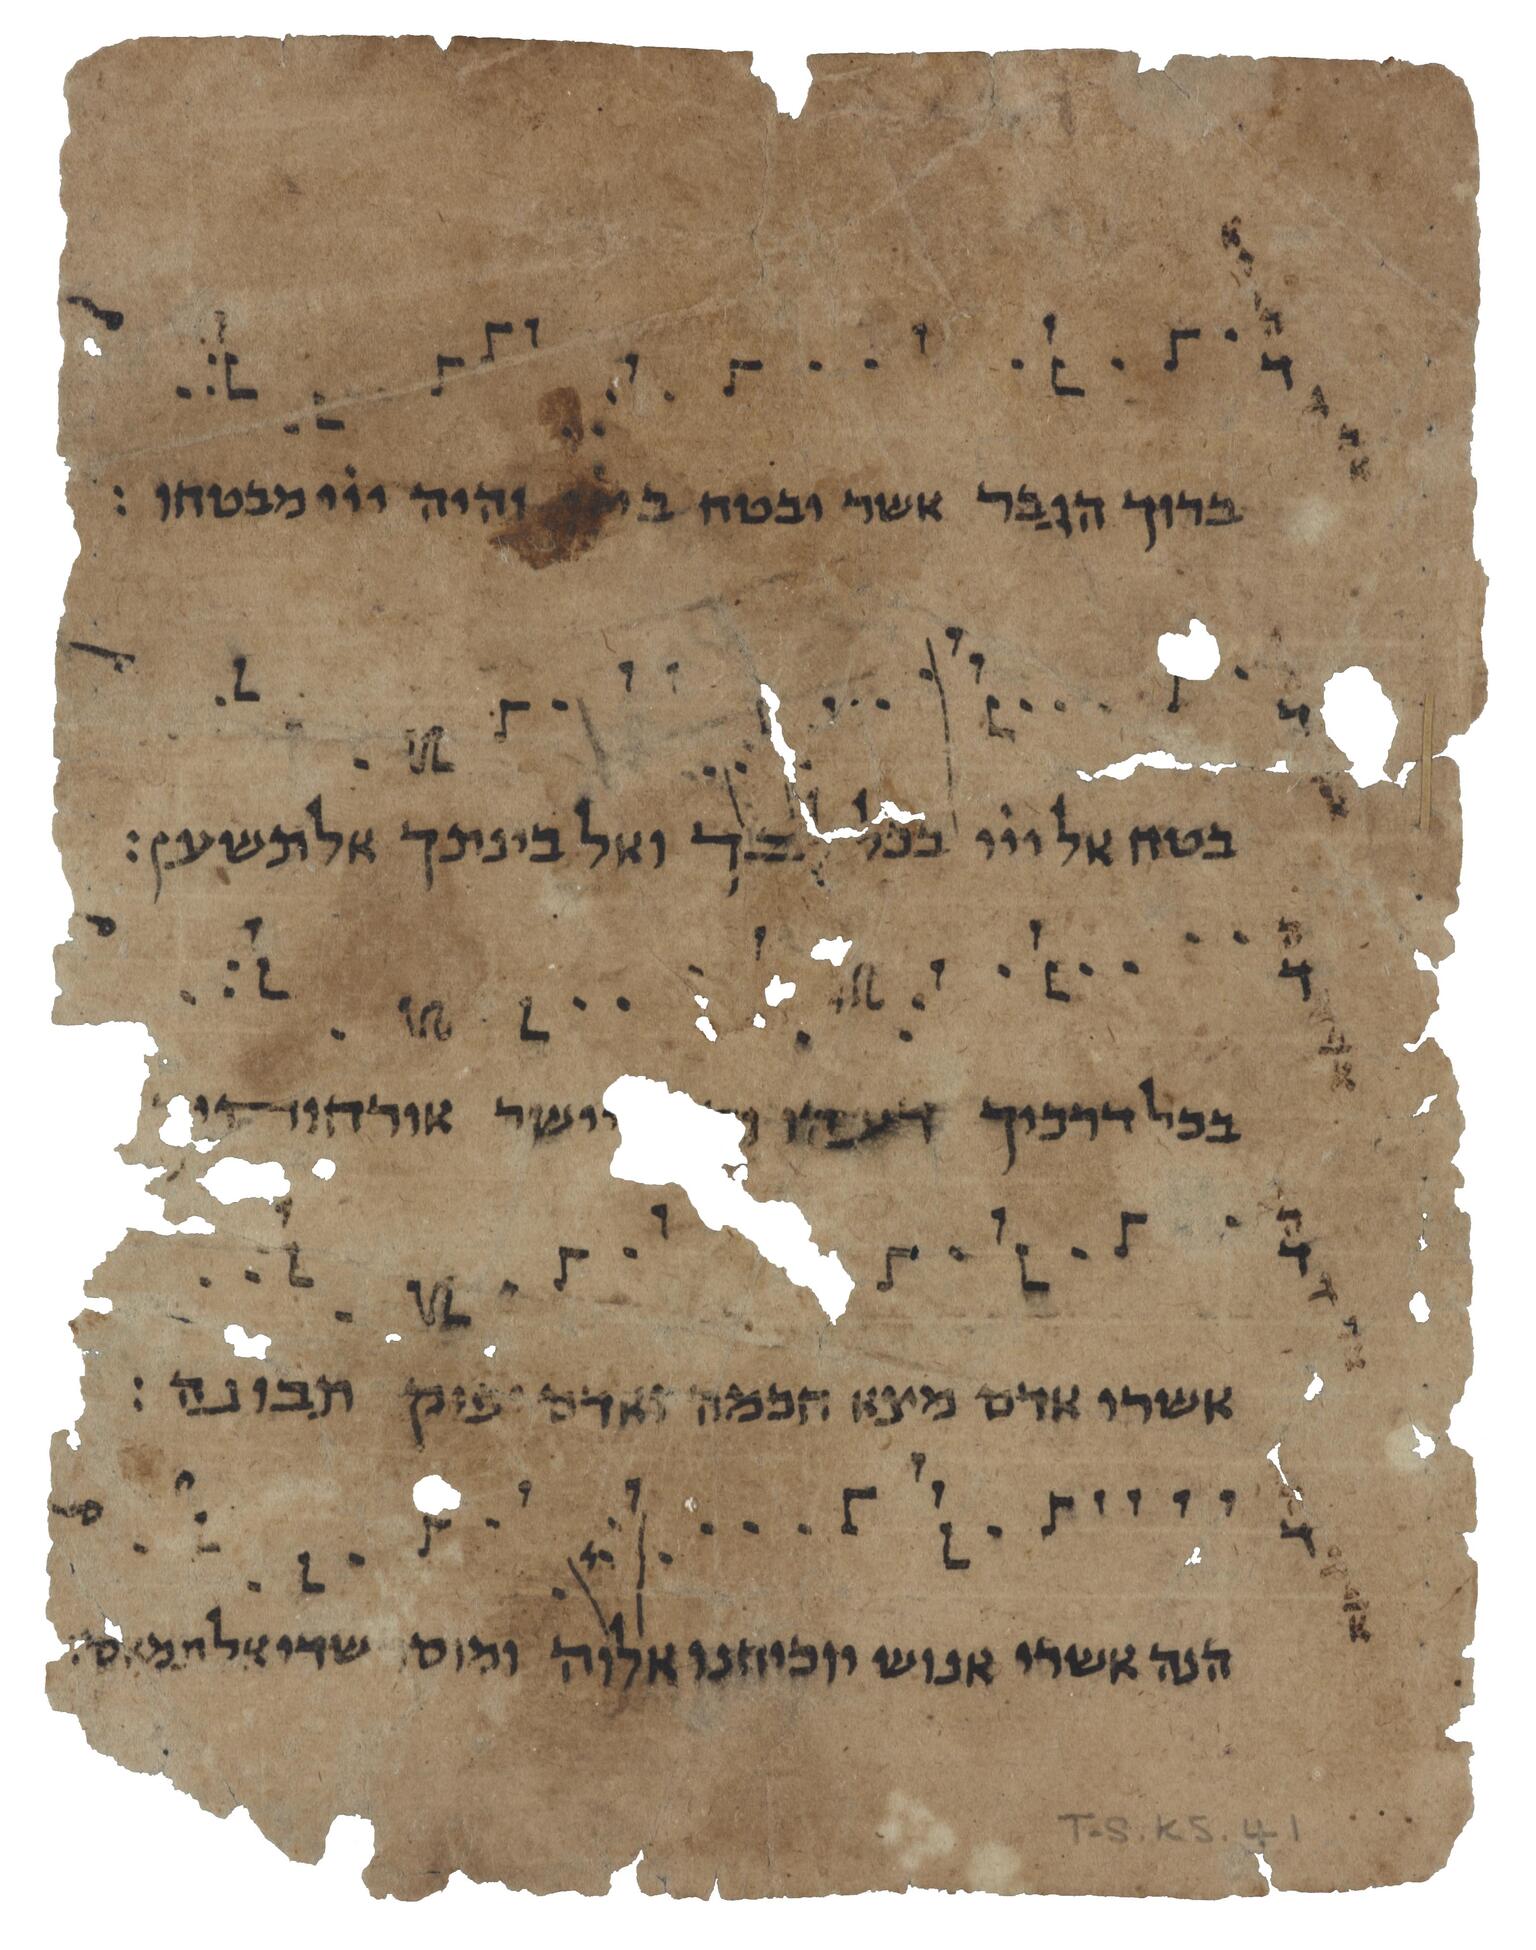 ברוך הגבר אשר יבטח והיה ייי מבטחו :
בטח אל ייי בכל ואל בינתך אל תשען :
בכל דרכיך דעהו יישר אורחותיך
אשרי אדם מצא חכמה ואדם יפיק תבונה :
הנה אשרי אנוש יוכיחנו אלוה ומוסר שדי אל תמאס :
T-S. K5. 41